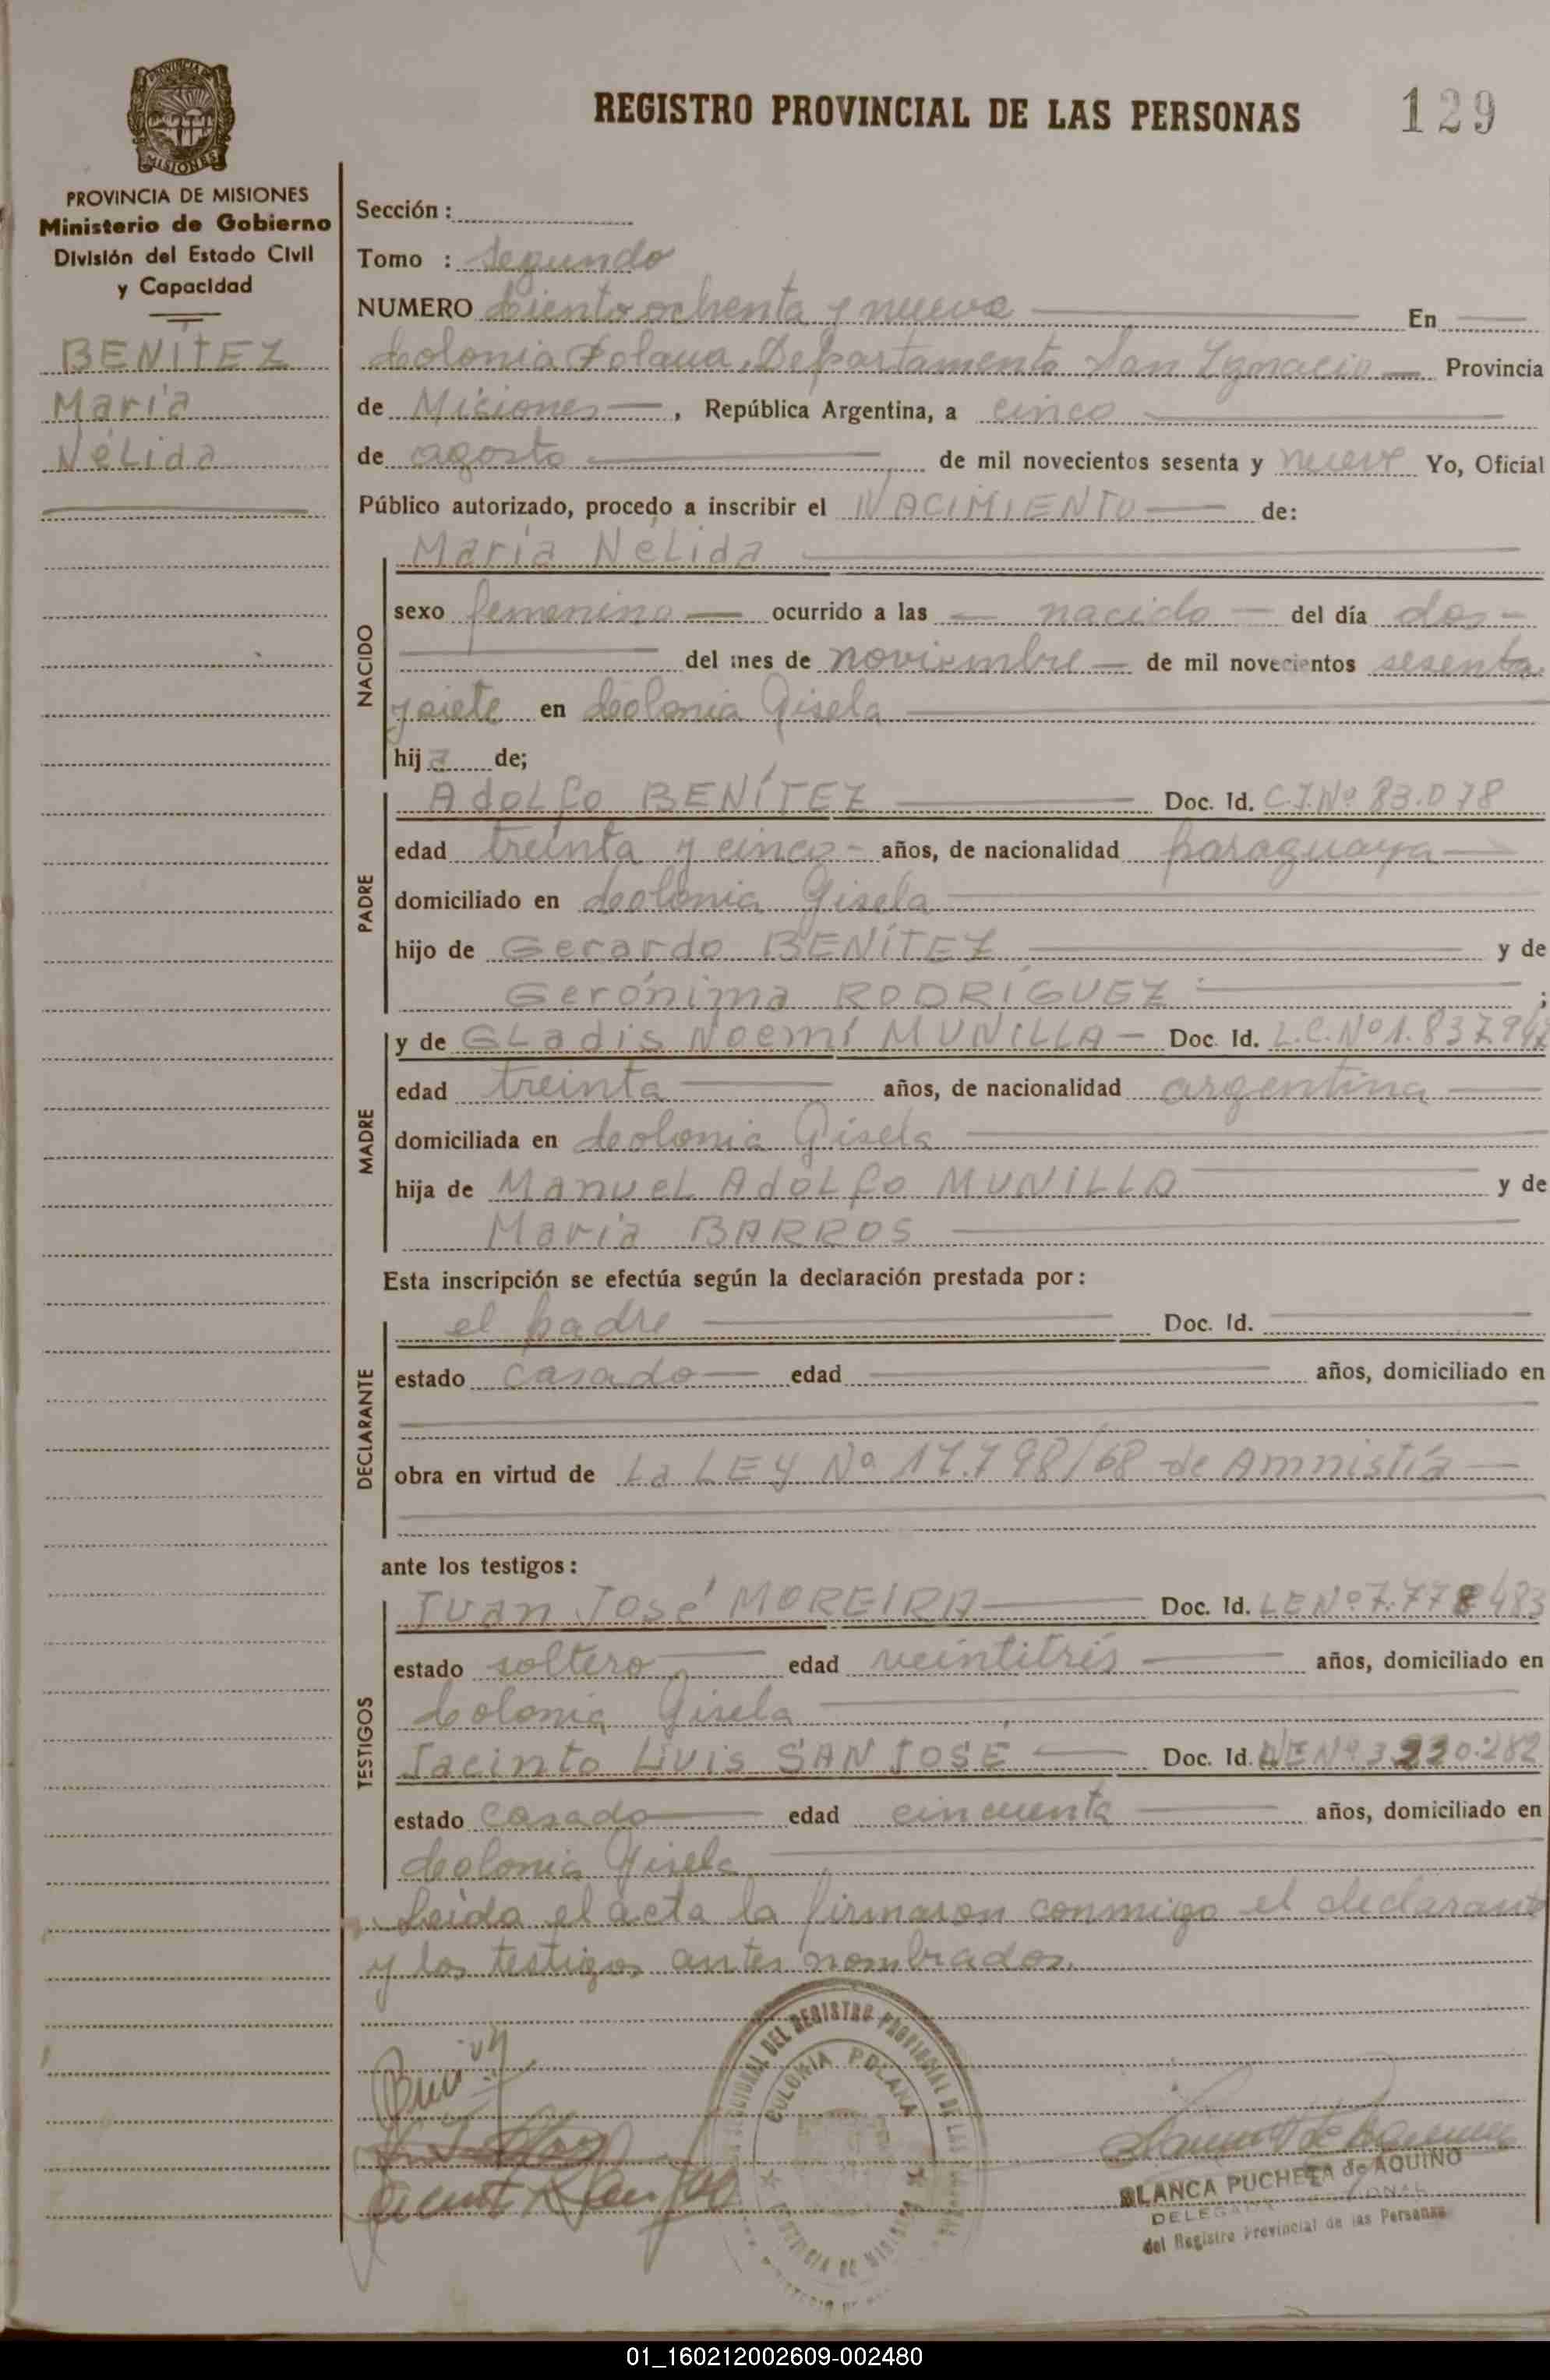 REGISTRO PROVINCIAL DE LAS PERSONAS 129
PROVINCIA DE MISIONES
Ministerio de Gobierno
División del Estado Civil
y Capacidad
BENÍTEZ
María
Nélida
Sección :
Tomo : Segundo
NUMERO Ciento ochenta y nueve En
Colonia Polana, Departamento San Ignacio Provincia
de Misiones , República Argentina, a cinco
de agosto de mil novecientos sesenta y nueve Yo, Oficial
Público autorizado, procedo a inscribir el NACIMIENTO de:
NACIDO
María Nélida
sexo femenino ocurrido a las nacido del día dos
del mes de noviembre de mil novecientos sesenta
y siete en Colonia Gisela
hija de;
PADRE
Adolfo BENÍTEZ Doc. Id. C.I.Nº 83.078
edad treinta y cinco años, de nacionalidad paraguaya
domiciliado en Colonia Gisela
hijo de Gerardo BENÍTEZ y de
Gerónima RODRIGUEZ ;
MADRE
y de GLadis Noemí MUNILLA Doc. Id. L.C.Nº1.837.947
edad treinta años, de nacionalidad argentina
domiciliada en Colonia Gisela
hija de Manuel Adolfo MUNILLA y de
María BARROS
Esta inscripción se efectúa según la declaración prestada por:
DECLARANTE
el padre Doc. Id.
estado casado edad años, domiciliado en
obra en virtud de La LEY Nº 17.798/68 de Amnistía
ante los testigos:
TESTIGOS
Juan José MOREIRA Doc. Id. LENº7.778483
estado soltero edad veintitrés años, domiciliado en
Colonia Gisela
Jacinto Luis SAN JOSE Doc. Id. Nº3.220.282
estado casado edad cincuenta años, domiciliado en
Colonia Gisela
Leída el acta la firmaron conmigo el declarante
y los testigos antes nombrados.
DEL REGISTRO PROVINCIAL DE LAS
COLONIA POLANA
BLANCA PUCHETA de AQUINO
DELEGADA
del Registro Provincial de las Personas
01_160212002609-002480